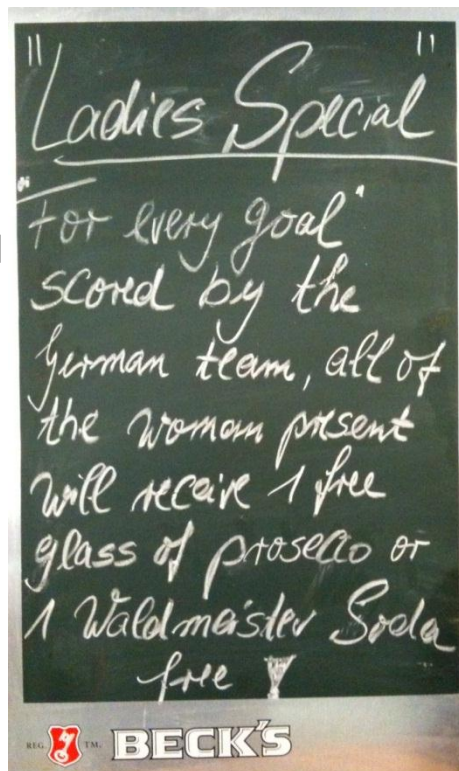 "Ladies Special"
For every goal"
scored by the
German team, all of
the woman present
will receive 1 free
glass of prosecco or
1 Waldmeister Soda
free
REG. TM. BECK'S